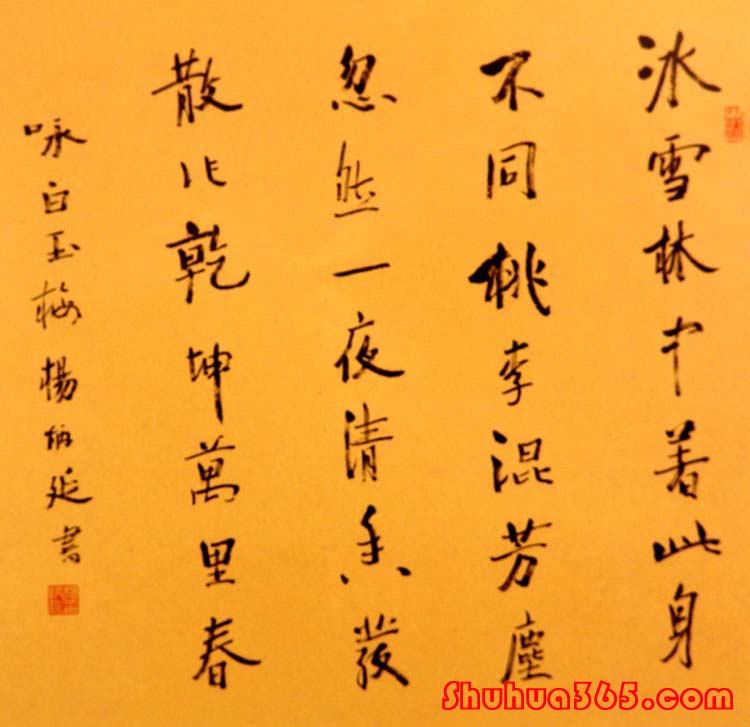 冰雪林中着此身
不同桃李混芳塵
忽然一夜清香發
散作乾坤萬里春
咏白玉梅楊炳延書
Shuhua365.com